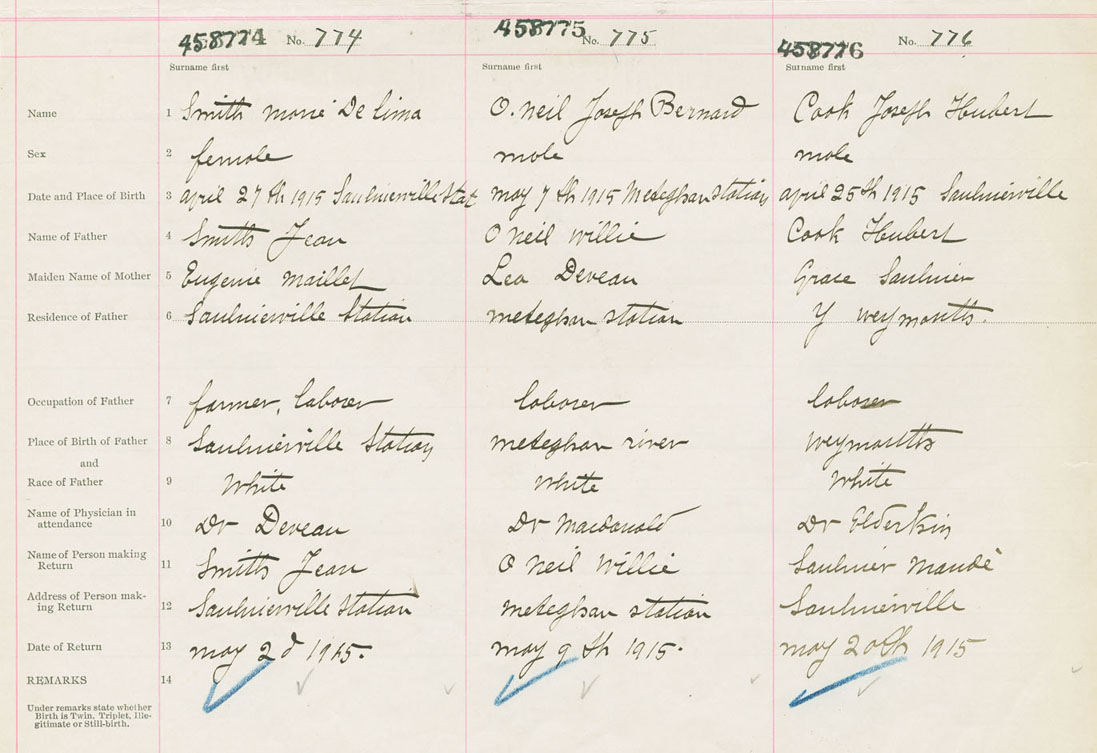 458774 No. 774 458775 No. 775 458776 No. 776
Surname first Surname first Surname first
Name 1 Smith marie De Lima O. neil Joseph Bernard Cook Joseph Hubert
Sex 2 female male male
Date and Place of Birth 3 april 27 th 1915 Saulnierville Stat may 7 th 1915 Meteghan station april 25th 1915 Saulnierville
Name of Father 4 Smith Jean O neil Willie Cook Hubert
Maiden Name of Mother 5 Eugenie maillet Lea Deveau Grace Saulnier
Residence of Father 6 Saulnierville Station meteghan station Y weymouth.
Occupation of Father 7 farmer, laborer laborer laborer
Place of Birth of Father 8 Saulnierville Station meteghan river weymouth
and
Race of Father 9 White White White
Name of Physician in
attendance 10 Dr Deveau Dr Macdonald Dr Elderkin
Name of Person making
Return 11 Smith Jean O neil Willie Saulnier Maudé
Address of Person mak-
ing Return 12 Saulnierville Station meteghan station Saulnierville
Date of Return 13 may 2d 1915. may 9 th 1915. may 20th 1915
REMARKS 14
Under remarks state whether
Birth is Twin, Triplet, Ille-
gitimate or Still-birth.